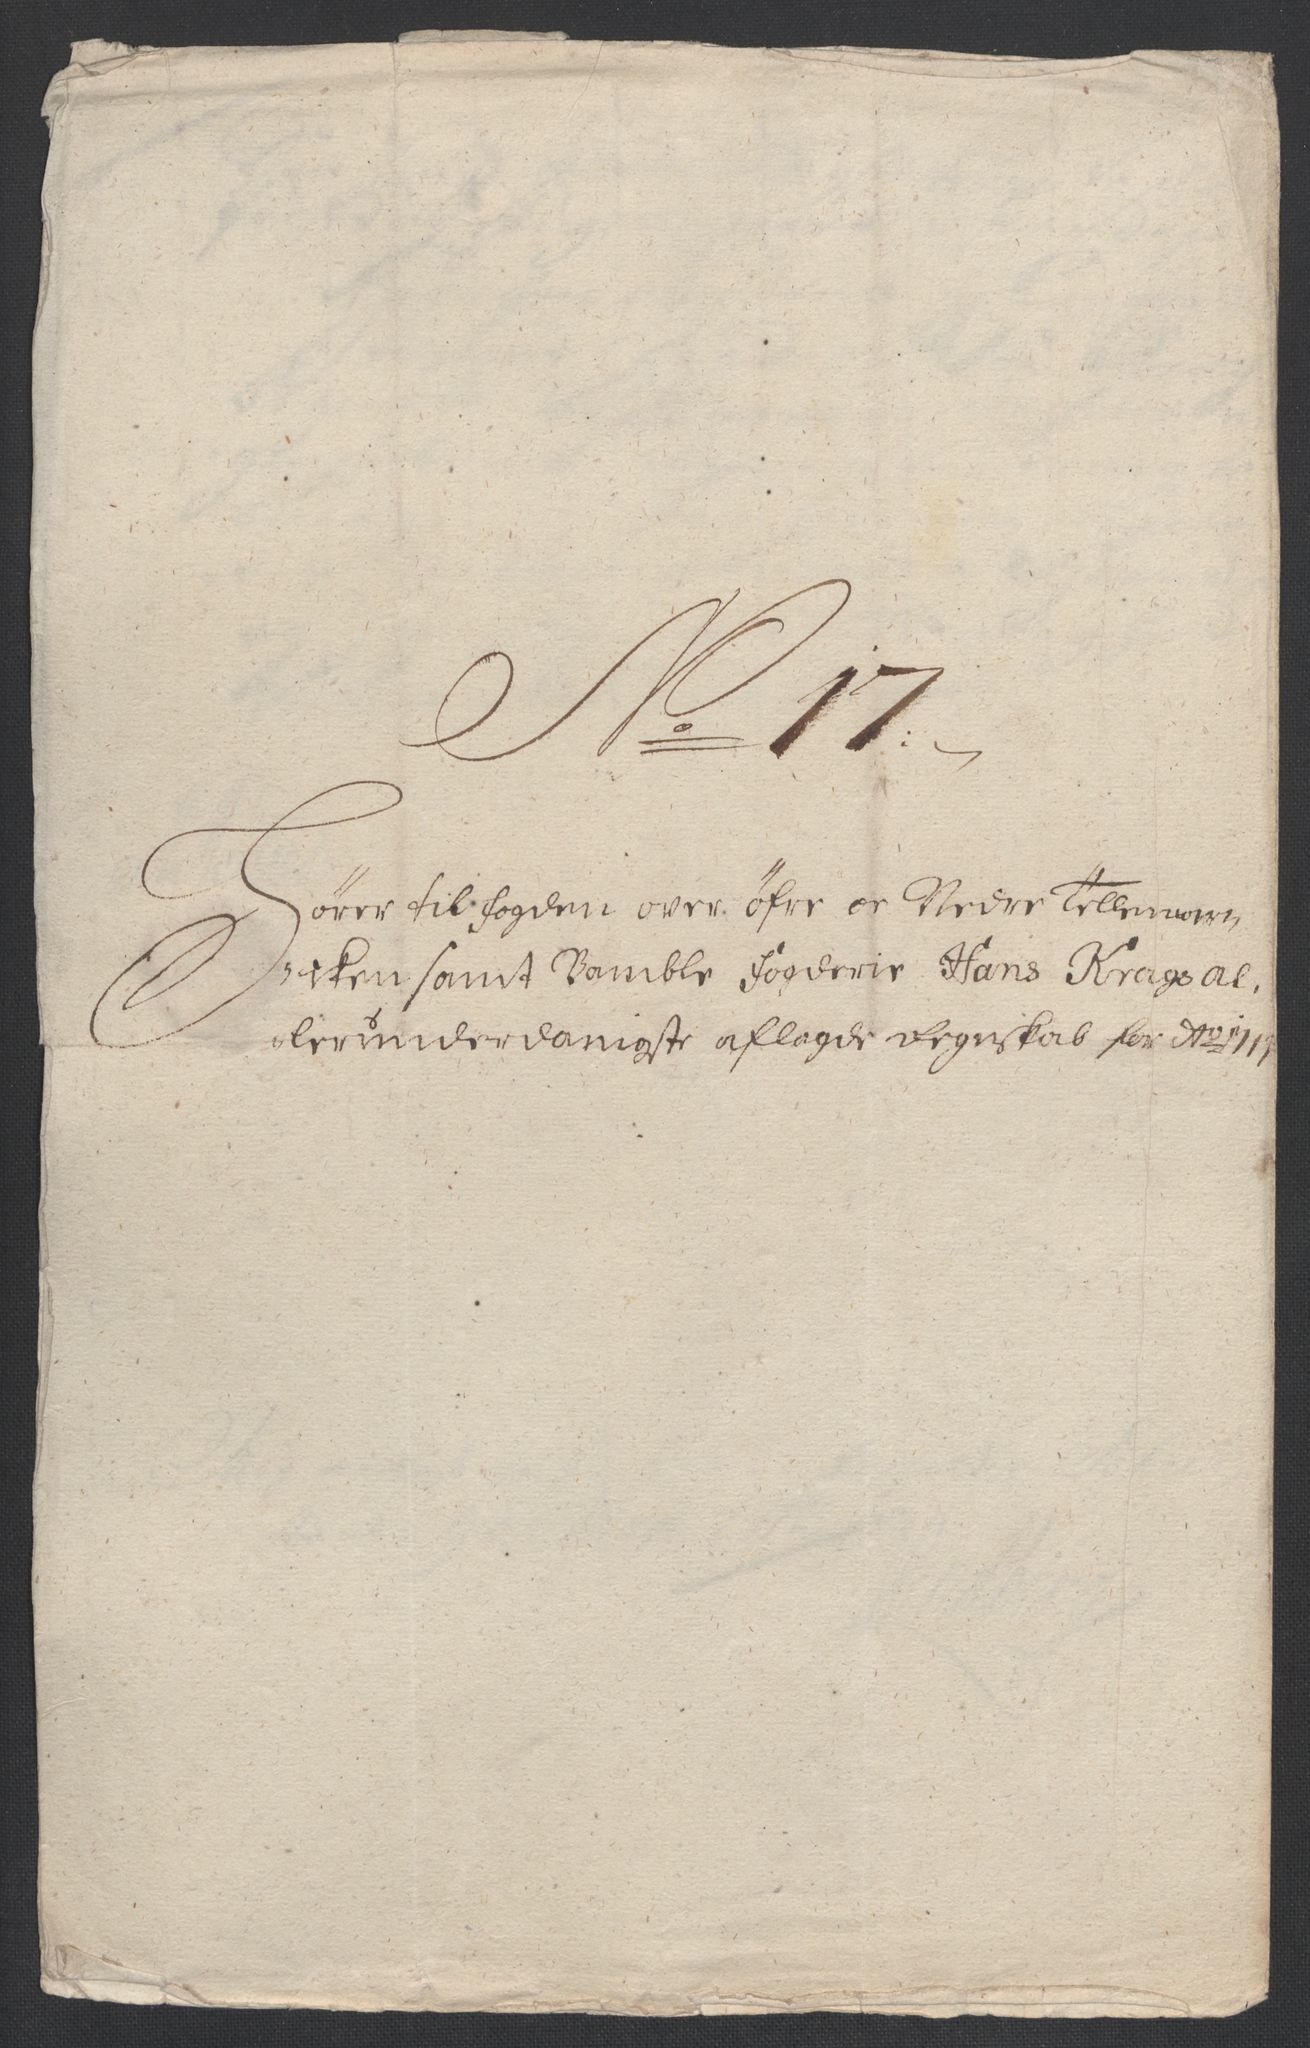 No 17.
Hörer til fogden over öfre oc Nedre Tellemar-
ken samt Bamble fogderie Hans Krags al-
lerunderdanigste aflagde Regnskab for Ao